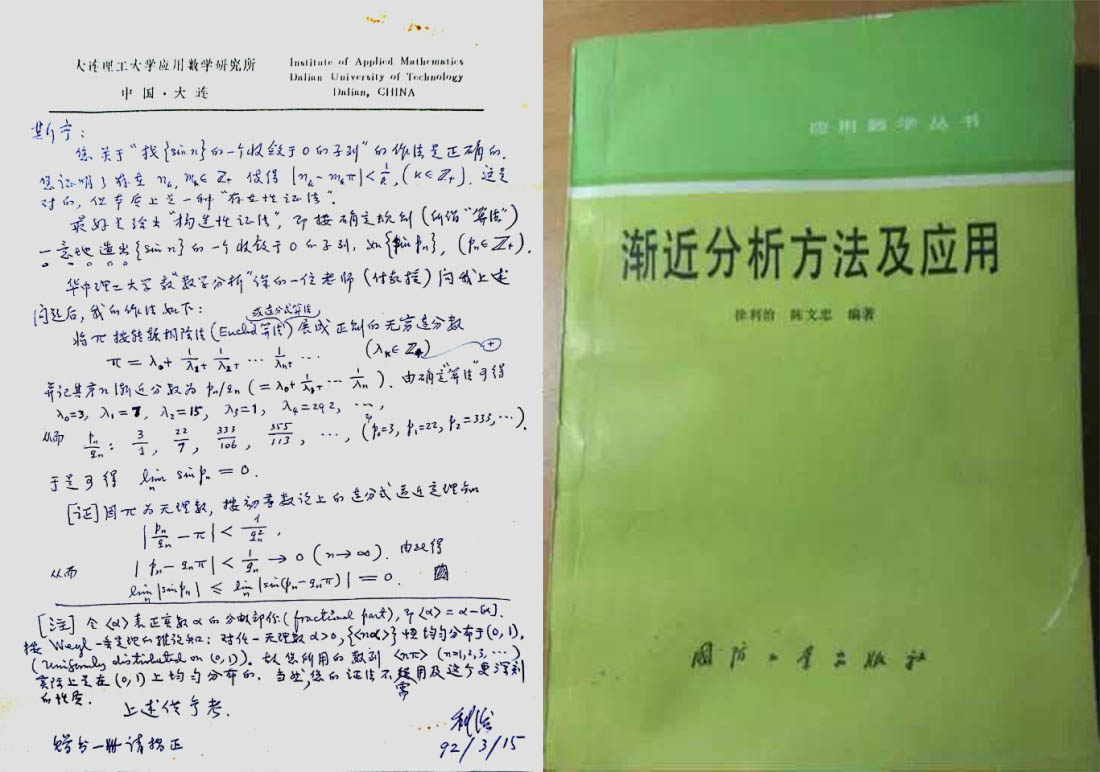 大连理工大学应用数学研究所
中国·大连
Institute of Applied Mathematics
Dalian University of Technology
Dalian, CHINA
斯宁:
您关于"找{sin n}的一个收敛于0的子列"的作法是正确的.
您证明了存在 nₖ, mₖ∈Z₊ 使得 |nₖ-mₖπ|<1/k, (k∈Z₊). 这是
对的, 但本质上是一种"存在性证法".
最好是给出"构造性证法", 即按确定规则(所谓"算法")
一意地造出{sin n}的一个收敛于0的子列, 如{sin pₙ}, (pₙ∈Z₊).
华中理工大学教"数学分析"课的一位老师(付教授)问我上述
问题后, 我的作法如下:
或连分式算法
将π按辗转相除法(Euclid算法)展成正则的无穷连分数
π = λ₀+ 1/λ₁+ 1/λ₂+ ⋯ 1/λₙ+ ⋯ (λₖ∈Z₊)
并记其第n渐近分数为 pₙ/qₙ (=λ₀+ 1/λ₁+ ⋯ 1/λₙ). 由确定"算法"可得
λ₀=3, λ₁=7, λ₂=15, λ₃=1, λ₄=292, ⋯,
从而 pₙ/qₙ: 3/1, 22/7, 333/106, 355/113, ⋯, (p₀=3, p₁=22, p₂=333, ⋯).
于是可得 lim sin pₙ = 0.
n
[证] 因π为无理数, 按初等数论上的连分式逼近定理知
|pₙ/qₙ - π| < 1/qₙ²,
从而 |pₙ-qₙπ| < 1/qₙ → 0 (n→∞). 由此得
lim|sin pₙ| ≤ lim|sin(pₙ-qₙπ)| = 0.
n n
[注] 令〈α〉表正实数α的分数部份(fractional part), 即〈α〉=α-[α].
按Weyl一条定理的推论知: 对任一无理数α>0, {〈nα〉}恒均匀分布于(0,1),
(Uniformly distributed on (0,1)). 故您所用的数列〈nπ〉(n=1,2,3,⋯)
实际上是在(0,1)上均匀分布的. 当然, 您的证法不需用及这个更深刻
的性质.
上述供参考.
利治
赠书一册请指正
92/3/15
应用数学丛书
渐近分析方法及应用
徐利治 陈文忠 编著
国防工业出版社